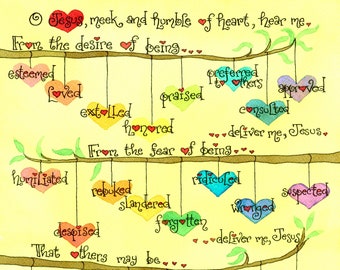 O Jesus, meek and humble of heart, hear me.
From the desire of being...
esteemed
loved
extolled
honored
praised
preferred to others
consulted
approved
...deliver me, Jesus.
From the fear of being...
humiliated
despised
rebuked
slandered
forgotten
ridiculed
wronged
suspected
...deliver me, Jesus.
That others may be...